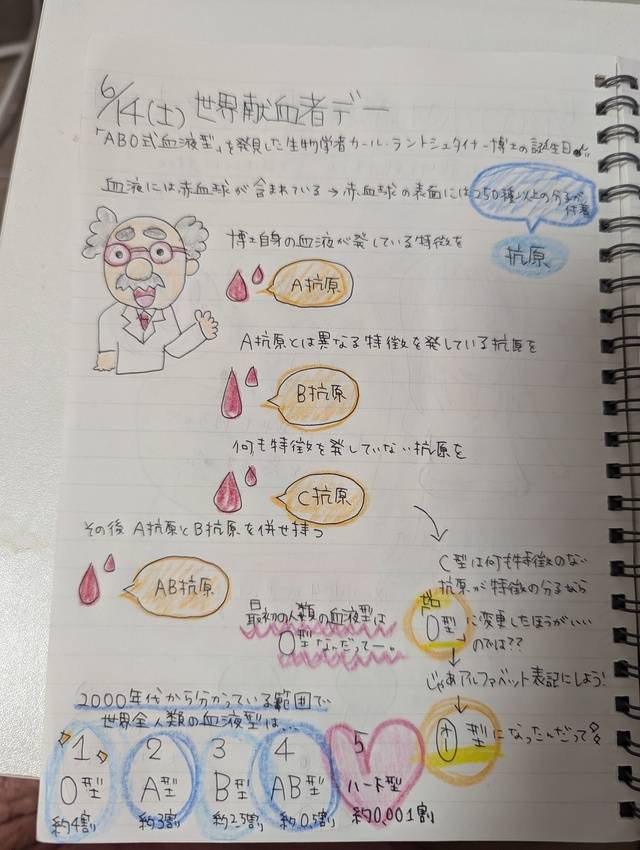 6/14(土) 世界献血者デー
「ABO式血液型」を発見した生物学者カール・ラントシュタイナー博士の誕生日
血液には赤血球が含まれている→赤血球の表面には250種以上の分子が付着
抗原
博士自身の血液が発している特徴を
A抗原
A抗原とは異なる特徴を発している抗原を
B抗原
何も特徴を発していない抗原を
C抗原
その後 A抗原とB抗原を併せ持つ
AB抗原
C型は何も特徴のない
抗原が特徴の分子なら
ゼロ
0型に変更したほうがいい
のでは??
じゃあアルファベット表記にしよう!
オー
O型になったんだって
最初の人類の血液型は
O型なんだってー。
2000年代から分かっている範囲で
世界全人類の血液型は…
1 O型 約4割
2 A型 約3割
3 B型 約2.5割
4 AB型 約0.5割
5 ハート型 約0,001割